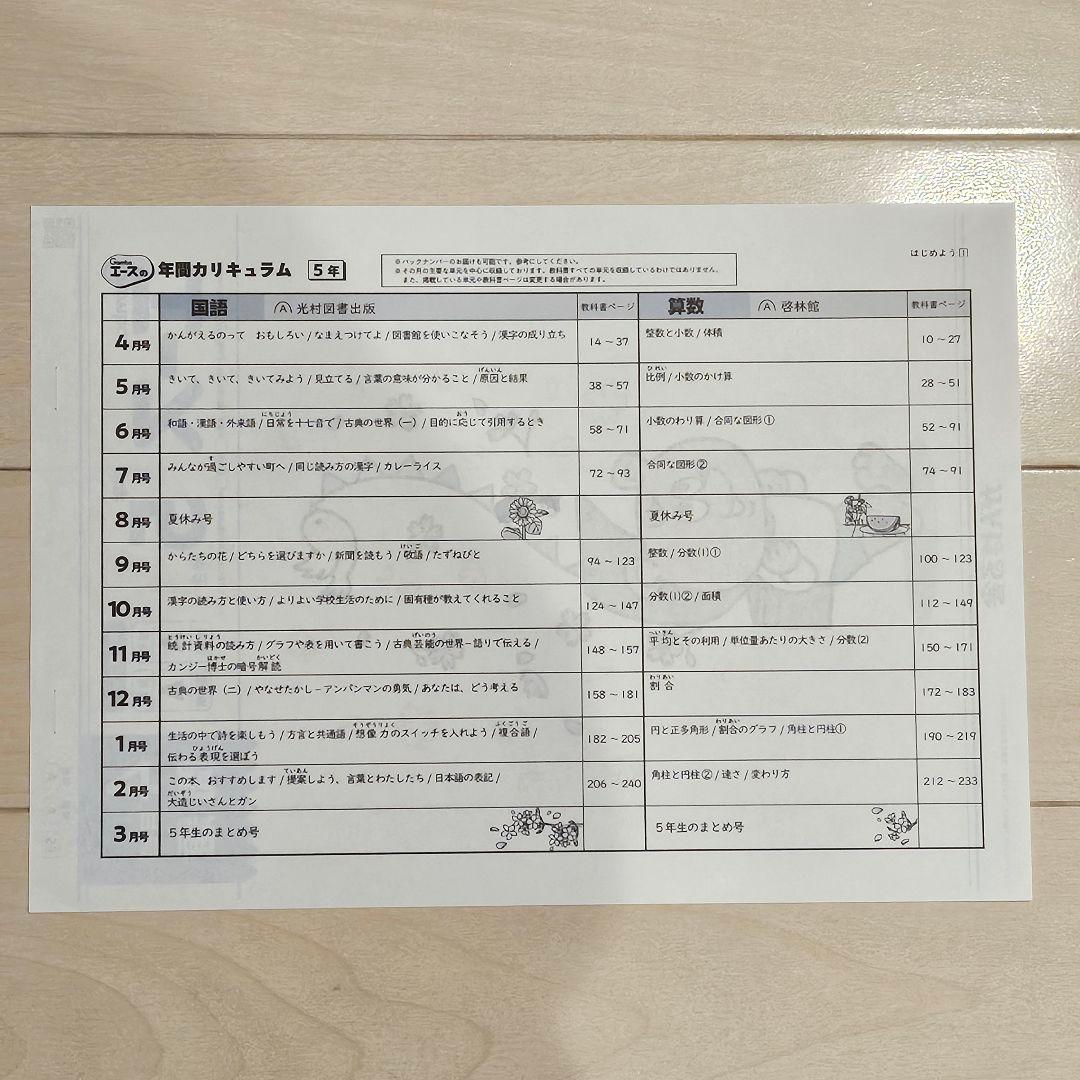 Gambaエースの 年間カリキュラム 5年
※バックナンバーのお届けも可能です。参考にしてください。
※その月の主要な単元を中心に収録しております。教科書すべての単元を収録しているわけではありません。
また、掲載している単元や教科書ページは変更する場合があります。
はじめよう1
国語 A 光村図書出版 教科書ページ 算数 A 啓林館 教科書ページ
4月号 かんがえるのって おもしろい/なまえつけてよ/図書館を使いこなそう/漢字の成り立ち 14~37 整数と小数/体積 10~27
げんいん ひれい
5月号 きいて、きいて、きいてみよう/見立てる/言葉の意味が分かること/原因と結果 38~57 比例/小数のかけ算 28~51
にちじょう おう
6月号 和語・漢語・外来語/日常を十七音で/古典の世界(一)/目的に応じて引用するとき 58~71 小数のわり算/合同な図形① 52~91
す
7月号 みんなが過ごしやすい町へ/同じ読み方の漢字/カレーライス 72~93 合同な図形② 74~91
8月号 夏休み号 夏休み号
けいご
9月号 からたちの花/どちらを選びますか/新聞を読もう/敬語/たずねびと 94~123 整数/分数(1)① 100~123
10月号 漢字の読み方と使い方/よりよい学校生活のために/固有種が教えてくれること 124~147 分数(1)②/面積 112~149
とうけいしりょう げいのう へいきん
11月号 統計資料の読み方/グラフや表を用いて書こう/古典芸能の世界-語りで伝える/ 148~157 平均とその利用/単位量あたりの大きさ/分数(2) 150~171
はかせ かいどく
カンジー博士の暗号解読
わりあい
12月号 古典の世界(二)/やなせたかし-アンパンマンの勇気/あなたは、どう考える 158~181 割合 172~183
そうぞうりょく ふくごうご わりあい
1月号 生活の中で詩を楽しもう/方言と共通語/想像力のスイッチを入れよう/複合語/ 182~205 円と正多角形/割合のグラフ/角柱と円柱① 190~219
ひょうげん
伝わる表現を選ぼう
ていあん
2月号 この本、おすすめします/提案しよう、言葉とわたしたち/日本語の表記/ 206~240 角柱と円柱②/速さ/変わり方 212~233
だいぞう
大造じいさんとガン
3月号 5年生のまとめ号 5年生のまとめ号